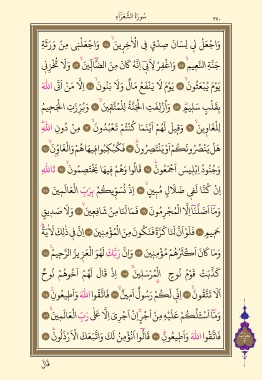 سُورَةُ الشُّعَرَاءِ
٣٧٠
وَاجْعَلْ لِي لِسَانَ صِدْقٍ فِي الْآخِرِينَ ۝ وَاجْعَلْنِي مِنْ وَرَثَةِ
جَنَّةِ النَّعِيمِ ۝ وَاغْفِرْ لِأَبِي إِنَّهُ كَانَ مِنَ الضَّالِّينَ ۝ وَلَا تُخْزِنِي
يَوْمَ يُبْعَثُونَ ۝ يَوْمَ لَا يَنْفَعُ مَالٌ وَلَا بَنُونَ ۝ إِلَّا مَنْ أَتَى اللهَ
بِقَلْبٍ سَلِيمٍ ۝ وَأُزْلِفَتِ الْجَنَّةُ لِلْمُتَّقِينَ ۝ وَبُرِّزَتِ الْجَحِيمُ
لِلْغَاوِينَ ۝ وَقِيلَ لَهُمْ أَيْنَمَا كُنْتُمْ تَعْبُدُونَ ۝ مِنْ دُونِ اللهِ
هَلْ يَنْصُرُونَكُمْ أَوْ يَنْتَصِرُونَ ۝ فَكُبْكِبُوا فِيهَا هُمْ وَالْغَاوُونَ ۝
وَجُنُودُ إِبْلِيسَ أَجْمَعُونَ ۝ قَالُوا وَهُمْ فِيهَا يَخْتَصِمُونَ ۝ تَاللهِ
إِنْ كُنَّا لَفِي ضَلَالٍ مُبِينٍ ۝ إِذْ نُسَوِّيكُمْ بِرَبِّ الْعَالَمِينَ ۝
وَمَا أَضَلَّنَا إِلَّا الْمُجْرِمُونَ ۝ فَمَا لَنَا مِنْ شَافِعِينَ ۝ وَلَا صَدِيقٍ
حَمِيمٍ ۝ فَلَوْ أَنَّ لَنَا كَرَّةً فَنَكُونَ مِنَ الْمُؤْمِنِينَ ۝ إِنَّ فِي ذَلِكَ لَآيَةً
وَمَا كَانَ أَكْثَرُهُمْ مُؤْمِنِينَ ۝ وَإِنَّ رَبَّكَ لَهُوَ الْعَزِيزُ الرَّحِيمُ ۝
كَذَّبَتْ قَوْمُ نُوحٍ الْمُرْسَلِينَ ۝ إِذْ قَالَ لَهُمْ أَخُوهُمْ نُوحٌ
أَلَا تَتَّقُونَ ۝ إِنِّي لَكُمْ رَسُولٌ أَمِينٌ ۝ فَاتَّقُوا اللهَ وَأَطِيعُونِ ۝
وَمَا أَسْئَلُكُمْ عَلَيْهِ مِنْ أَجْرٍ إِنْ أَجْرِيَ إِلَّا عَلَى رَبِّ الْعَالَمِينَ ۝
فَاتَّقُوا اللهَ وَأَطِيعُونِ ۝ قَالُوا أَنُؤْمِنُ لَكَ وَاتَّبَعَكَ الْأَرْذَلُونَ ۝
قَالَ